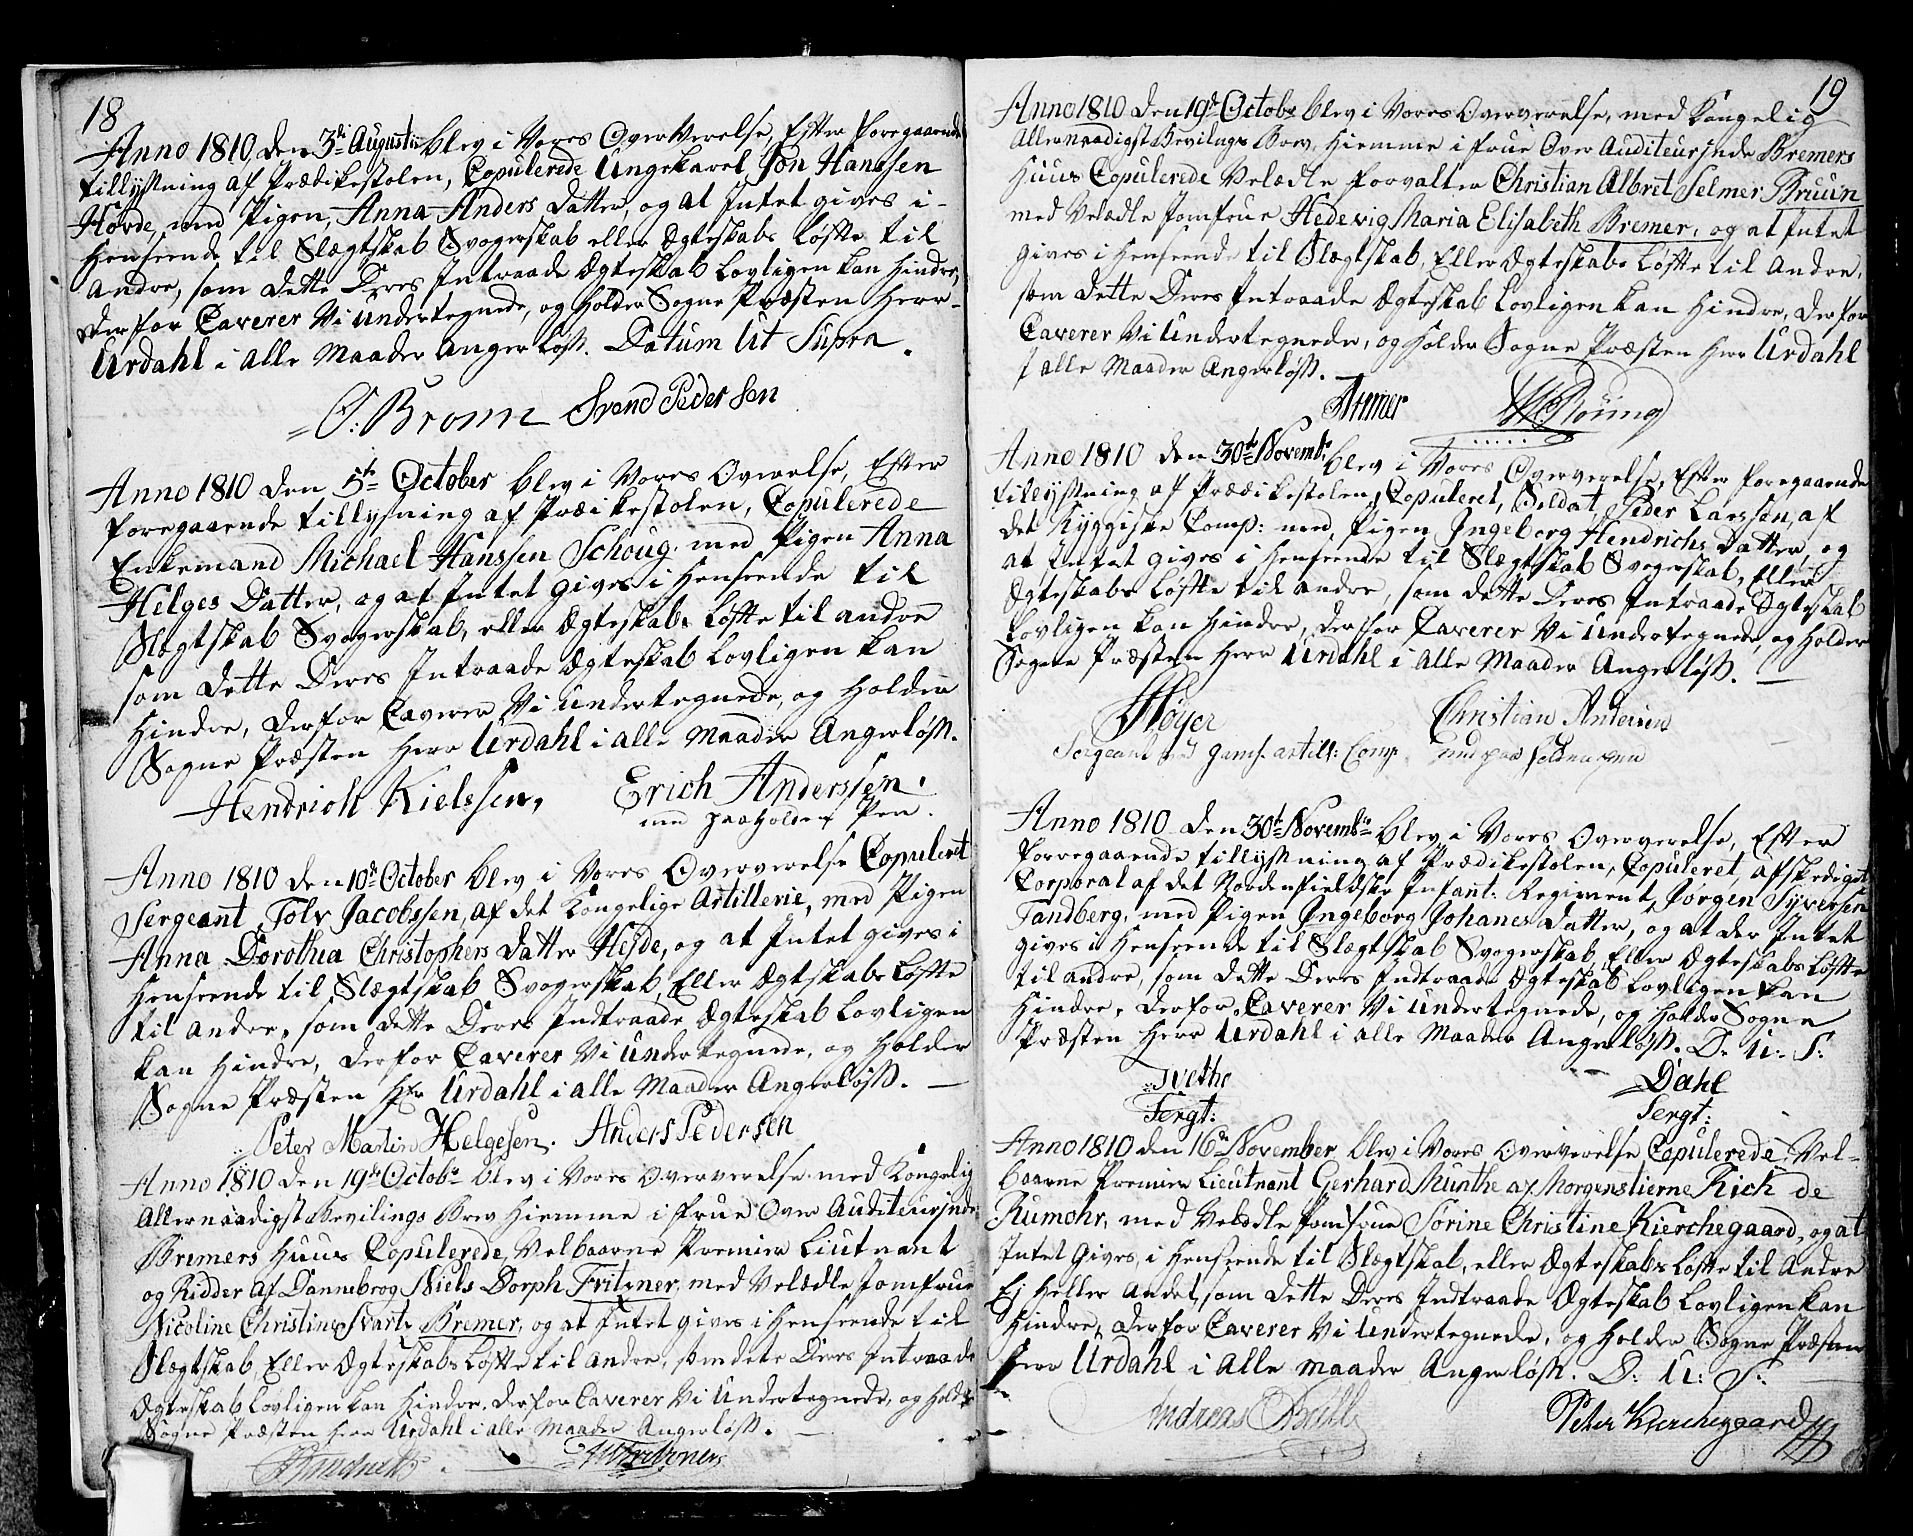 18
Anno 1810, den 3die Augusti blev i Vores Over Verelse, Efter foregaaende
tillysning af Prædikestolen, Copulerede Ungekarel Jon Hanssen
Hovde, med Pigen, Anna Anders Datter, og at Intet gives i
Henseende til Slægtskab Svogerskab eller Ægteskabs Løfte til
andre, som dette Deres Intraade Ægteskab Lovligen kan Hindre,
derfor Caverer Vi Undertegnede, og Holder Sogne Præsten Herr
Urdahl i alle Maader Angerløss. Datum Ut Supra.
O: Brom Svend Pedersen
Anno 1810 den 5te October blev i Vores Overelse, Efter
foregaaende tillysning af Præikestolen, Copulerede
Enkemand Michael Hanssen Schoug med Pigen Anna
Helges Datter, og at Intet gives i Henseende til
Slægtskab Svogerskab, eller Ægteskabs Løfte til andre
som dette Deres Intraade Ægteskab Lovligen kan
Hindre, derfor Caverer Vi Undertegnede, og Holder
Sogne Præsten Herr Urdahl i alle Maader Angerløss.
Hendrich Kielssen, Erich Anderssen.
med paaholden Pen.
Anno 1810 den 10de October blev i Vores Oververelse Copuleret
Sergeant Tolv Jacobssen, af det Kongelige Artillerie, med Pigen
Anna Dorothea Christophers Datter Hejde, og at Intet gives i
Henseende til Slægtskab Svogerskab, Eller Ægtskabs Løfte
til andre, som dette Deres Indtraade Ægteskab Lovligen
kan Hindre, derfor Caverer Vi Undertegnde, og Holder
Sogne Præsten Hr Urdahl i alle Maader Angerløss.
Peter Martin Helgesen. Anders Pedersen
Anno 1810 den 19de Octobr blev i Vores Oververelse med Kongelig
Allernaadigst Bevilings Brev Hiemme i frue Over Auditeurinde
Bremers Huus Copulerede, Velbaarne Premier Liutnant
og Ridder af Dannebrog Niels Dorph Fritzner, med Velædle Jomfrue
Nicoline Christine Svarts Bremer, og at Intet gives i Henseende til
Slægtskab, Eller Ægteskabs Løfte til andre, som dete Deres Intraade
Ægteskab Lovligen kan Hindre, derfor Caverer Vi Undertegnede, og Holder
Sogne Præsten Herr Urdahl i alle Maader Angerløss.
19
Anno 1810 den 19de Octobr blev i Vores Oververelse, med Kongelig
Allernaadigst Bevilings Brev, Hiemme i frue Over Auditeurinde Bremers
Huus Copulerede Velædle Forvalter Christian Albret Selmer Bruun
med Velædle Jomfrue Hedevig Maria Elisabeth Bremer, og at Intet
gives i Henseende til Slægtskab, Eller Ægteskabs Løfte til andre,
som dette Deres Intraade Ægteskab Lovligen kan Hindre, derfor
Caverer Vi Undertegnede, og Holder Sogne Præsten Herr Urdahl
i alle Maader Angerløss.
Anno 1810 den 30te Novembr blev i Vores Oververelse, Efter foregaaende
tillysning af Prædikestolen, Copuleret, Soldat, Peder Larssen, af
det Ryggiske Comp: med Pigen Ingeborg Hendrichs Datter, og
at Intet gives i Henseende til Slægtskab Svogerskab, Eller
Ægteskabs Løfte til andre, som dette Deres Intraade Ægteskab
Lovligen kan Hindre, derfor Caverer Vi Undertegnede, og Holder
Sogne Præsten Herr Urdahl i alle Maader Angerløss.
Høyer Christian Andersen
Sergeant artill: Comp. med paaholden pen
Anno 1810 den 30te Novembr blev i Vores Oververelse, Efter
forregaaende tillysning af Prædikestolen, Copuleret, afskediget
Corporal af det Nordenfieldske Infant: Regiment, Jørgen Syversen
Tandberg, med Pigen Ingeborg Johanes Datter, og at der Intet
gives i Henseende til Slægtskab Svogerskab, Eller Ægteskabs Løfte
til andre, som dette Deres Indtraade Ægteskab Lovligen kan
Hindre, derfor Caverer Vi Undertegnede, og Holder Sogne
Præsten Herr Urdahl i alle Maader Angerløss. D. U: S:
Tvethe Dahl
Sergt: Sergt:
Anno 1810 den 16de November, blev i Vores Oververelse Copulerede Vel-
baarne Premier Lieutnant Gerhard Munthe af Morgenstierne Rich de
Rumohr, med Velædle Jomfrue Sørine Christine Kierchegaard, og at
Intet Gives, i Henseende til Slægtskab, eller Ægteskabs Løfte til Andre
Ej Heller andet, som dette Deres Indtraade Ægteskab Lovligen kan
Hindre, derfor Caverer Vi Undertegnede, og Holder Sogne Præsten
Herr Urdahl i Alle Maader Angerløss. D: U: S:
Andreas Bull Peter Kierchegaard